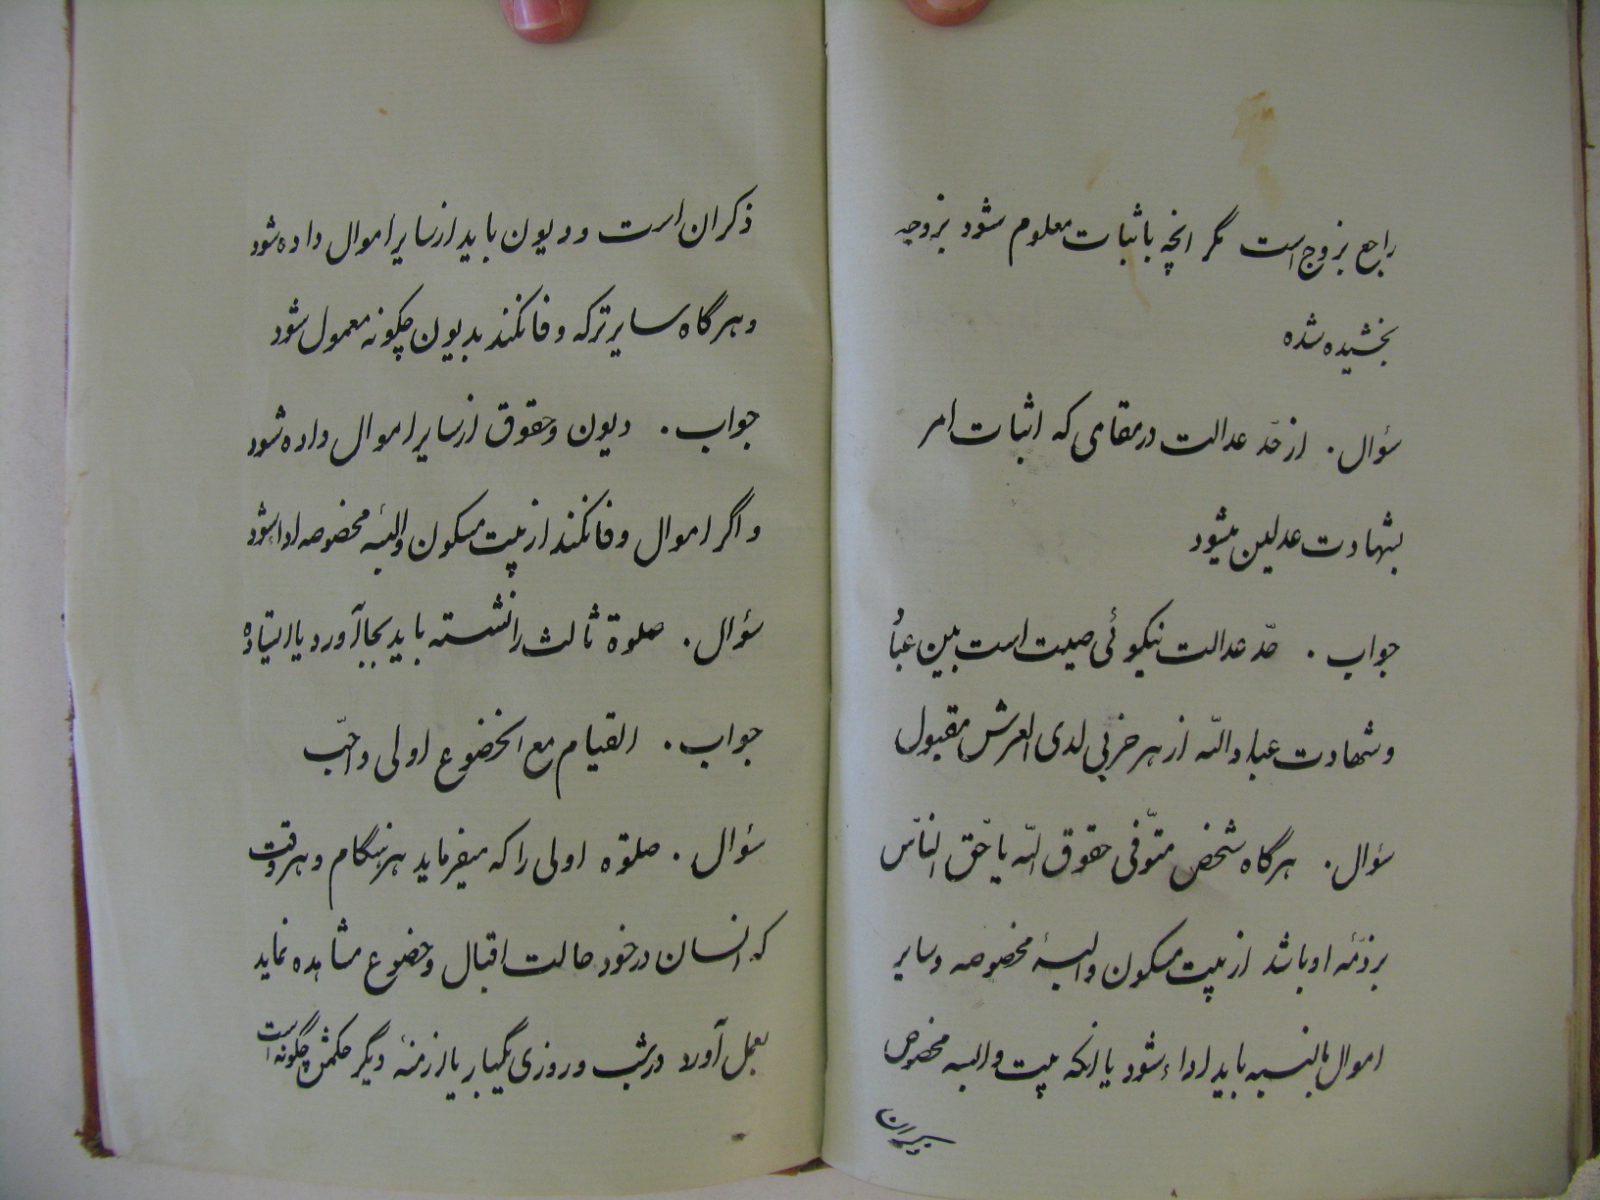 راجع بزوج است مگر انچه باثبات معلوم شود بزوجه
بخشیده شده
سؤال . از حدّ عدالت در مقامی که اثبات امر
بشهادت عدلین میشود
جواب . حدّ عدالت نیکوئی صیت است بین عباد
و شهادت عباد اللّه از هر حزبی لدی العرش مقبول
سؤال . هرگاه شخص متوّفی حقوق اللّه یا حّق النّاس
بر ذمّه او باشد از بیت مسکون و البسهٔ مخصوصه و سایر
اموال بالنسبه باید اداء شود یا انکه بیت و البسه مخصوص
ذکران است و دیون باید از سایر اموال داده شود
و هرگاه سایر ترکه وفا نکند بدیون چگونه معمول شود
جواب . دیون و حقوق از سایر اموال داده شود
و اگر اموال وفا نکند از بیت مسکون و البسهٔ مخصوصه ادا شود
سؤال . صلوة ثالث را نشسته باید بجا آورد یا ایستاده
جواب . القیام مع الخضوع اولی و احّب
سؤال . صلوة اولی را که میفرماید هر هنگام و هر وقت
که انسان در خود حالت اقبال و خضوع مشاهده نماید
بعمل آورد در شب و روزی یکبار یا ازمنهٔ دیگر حکمش چگونه است